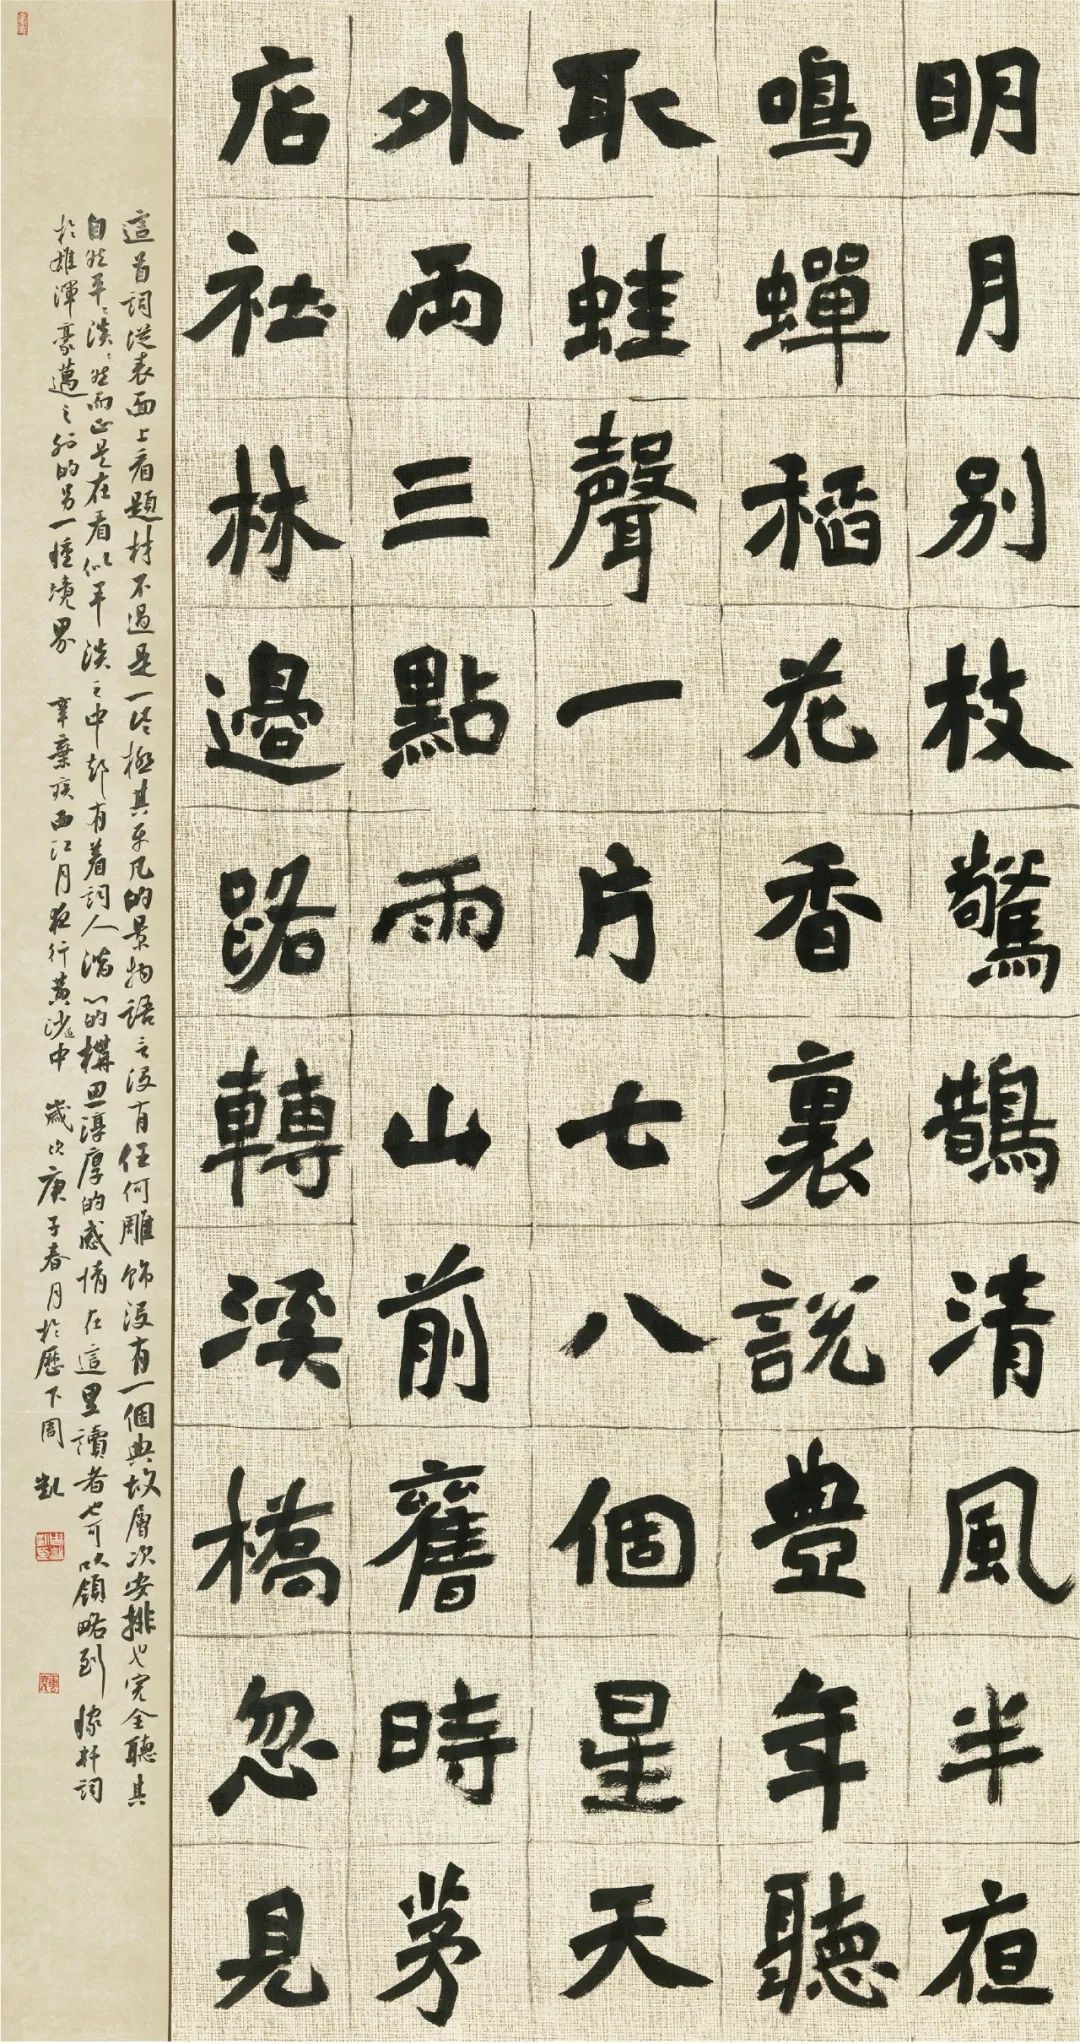 明月别枝驚鵲清風半夜
鳴蟬稻花香裏説豊年聽
取蛙聲一片七八個星天
外兩三點雨山前舊時茅
店社林邊路轉溪橋忽見
這首詞從表面上看題材不過是一些極其平凡的景物語言没有任何雕飾没有一個典故層次安排也完全聽其
自然平〻淡〻然而正是在看似平淡之中却有着詞人潛心的構思淳厚的感情在這里讀者也可以領略到稼軒詞
於雄渾豪邁之外的另一種境界 辛棄疾西江月夜行黄沙道中 歲次庚子春月於歷下周凱